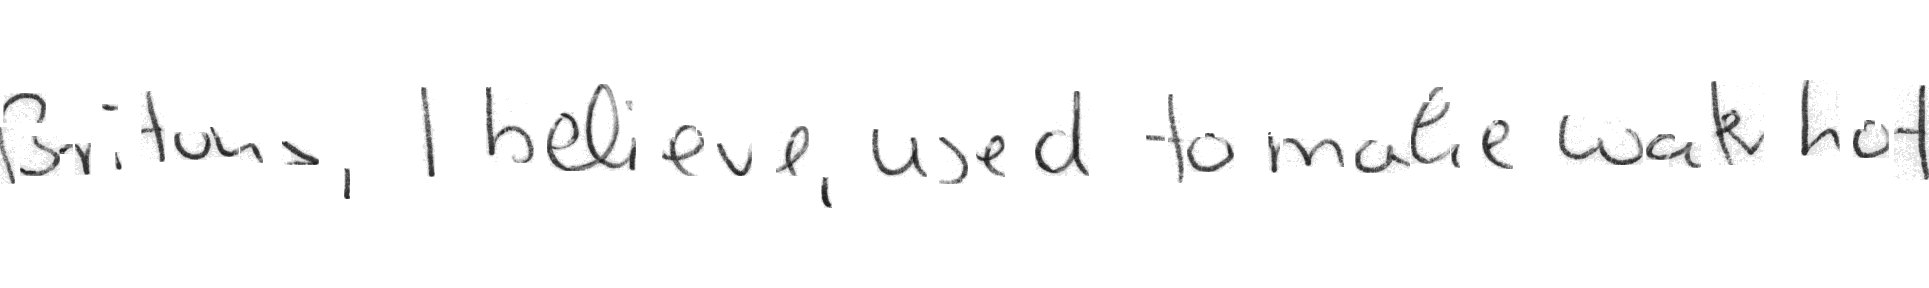 Britons, I believe, used to make water hot